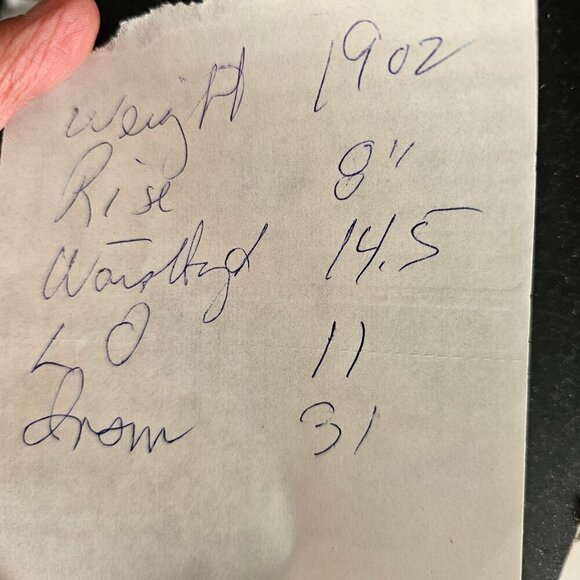 Weight 19oz
Rise 8"
Waistband 14.5
LO 11
Inseam 31